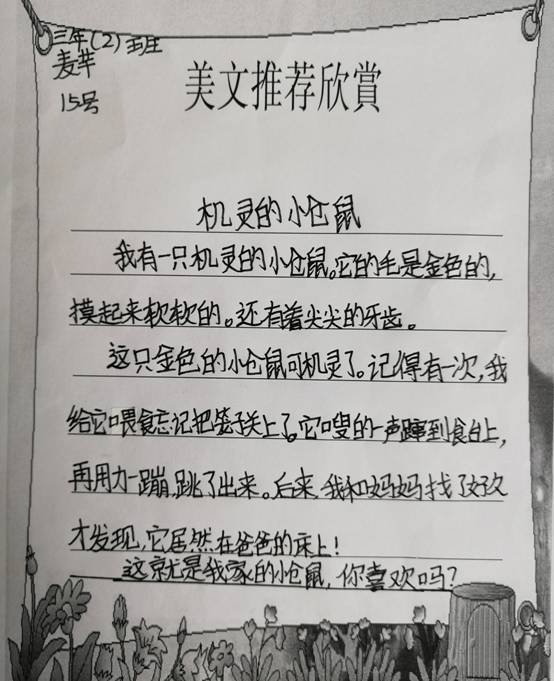 三年(2)班
麦芊
15号
美文推荐欣賞
机灵的小仓鼠
我有一只机灵的小仓鼠。它的毛是金色的,
摸起来软软的。还有着尖尖的牙齿。
这只金色的小仓鼠可机灵了。记得有一次,我
给它喂食忘记把笼子关上了。它嗖的一声蹿到食台上,
再用力一蹦,跳了出来。后来,我和妈妈找了好久
才发现,它居然在爸爸的床上!
这就是我家的小仓鼠,你喜欢吗?